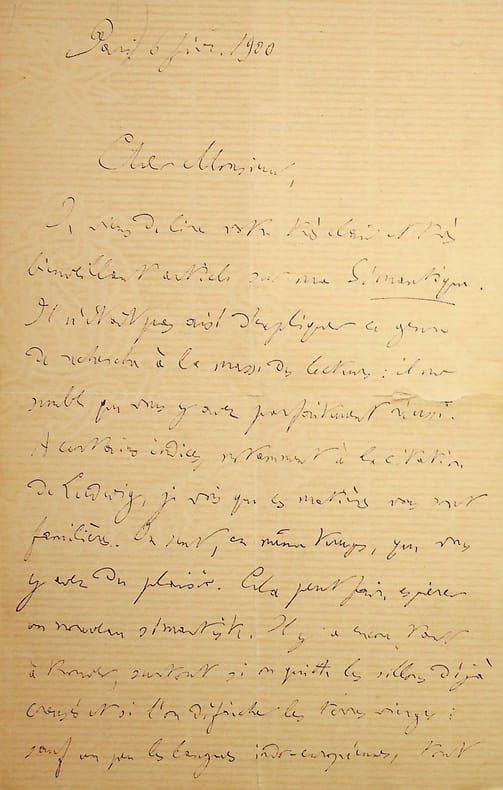 Paris 6 févr. 1900
Cher Monsieur,
Je viens de lire votre très clair et très
bienveillant article sur ma Sémantique.
Il n'était pas aisé d'expliquer ce genre
de recherche à la masse des lecteurs : il me
semble que vous y avez parfaitement réussi.
A certains indices, notamment à la citation
de Ludwig, je vois que ces matières vous sont
familières. On sent, en même temps, que vous
y avez du plaisir. Cela peut faire espérer
un nouveau sémantiste. Il y a encore tant
à trouver, surtout si on quitte les sillons déjà
creusés et si l'on défriche les terres vierges :
sauf un peu les langues indo-européennes, tout